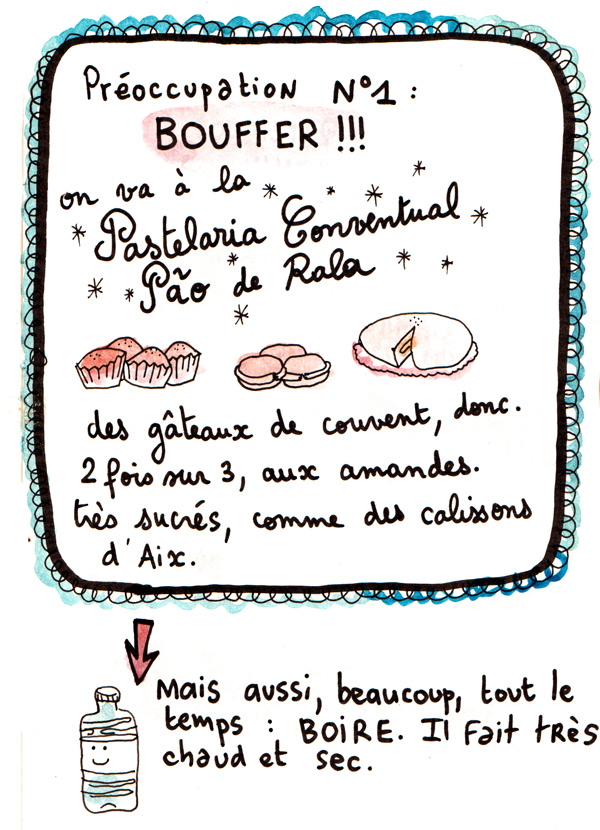 Préoccupation N°1 :
BOUFFER !!!
on va à la
Pastelaria Conventual
Pão de Rala
des gâteaux de couvent, donc.
2 fois sur 3, aux amandes.
très sucrés, comme des calissons
d'Aix.
Mais aussi, beaucoup, tout le
temps : BOIRE. Il fait très
chaud et sec.